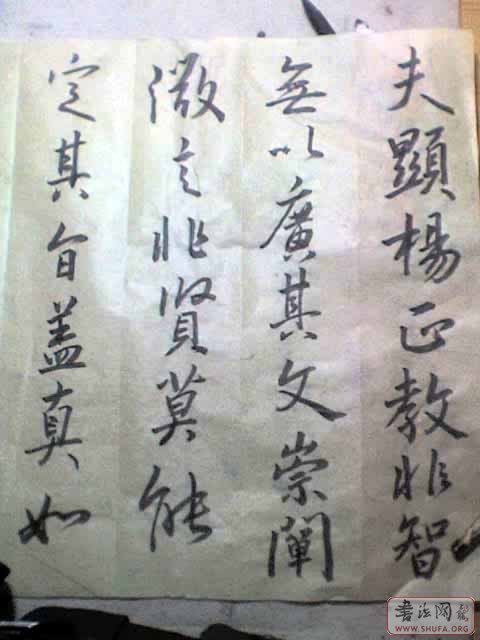 夫顯楊正教非智
無以廣其文崇闡
微言非賢莫能
定其旨蓋真如
书法网
www.SHUFA.ORG